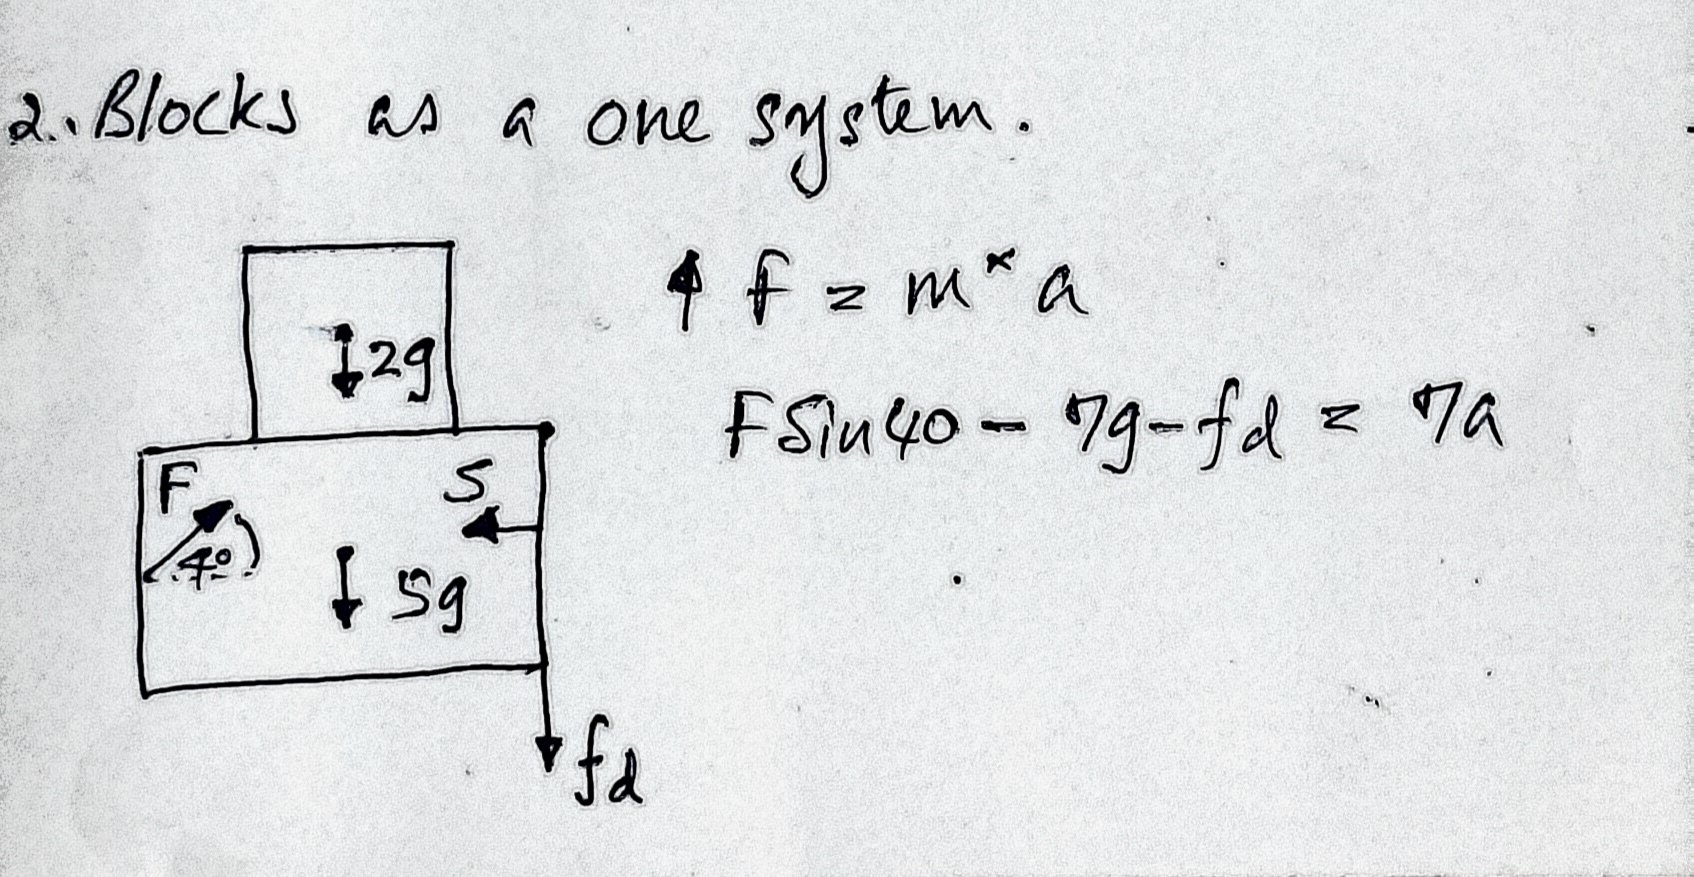 2. Blocks as a one system.
↑ F = m × a
2g
F Sin 40 - 7g - fd = 7a
F
S
40
5g
fd